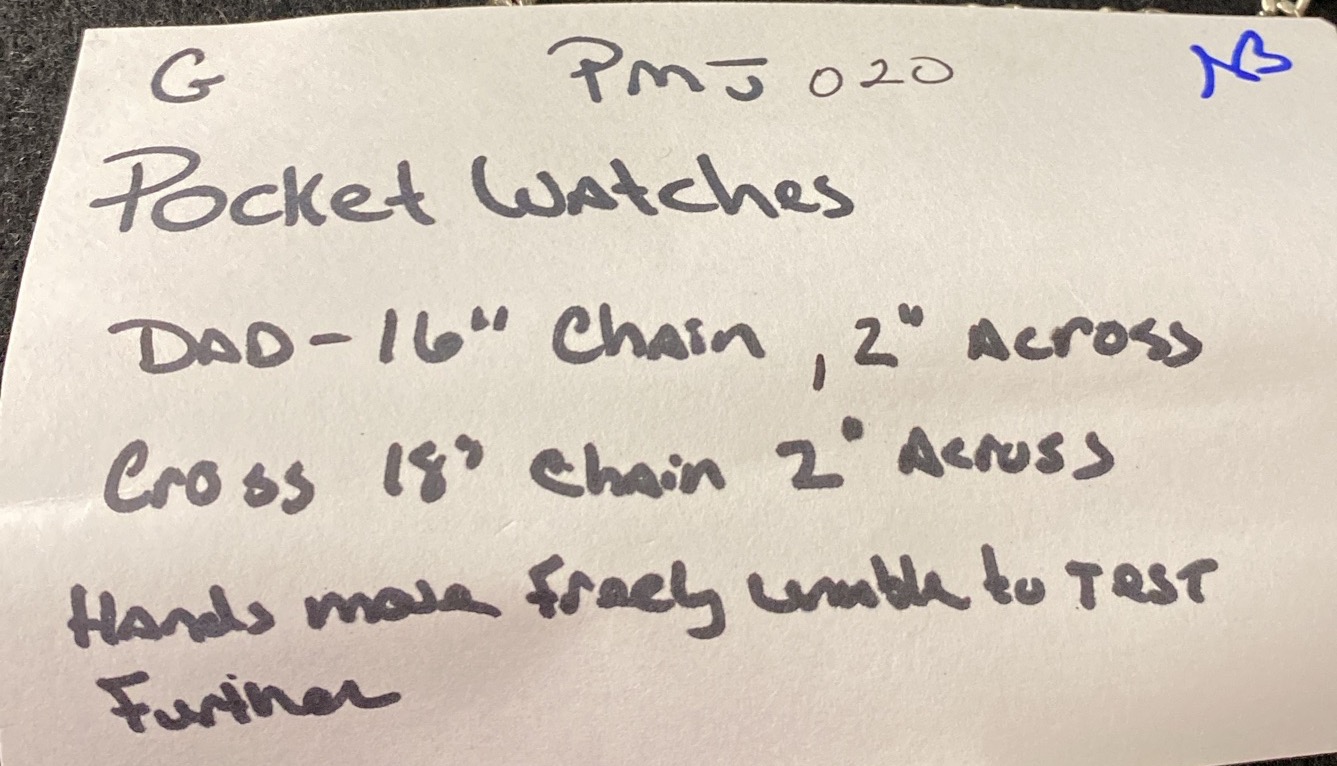 G PMJ 020 NB
Pocket Watches
DAD - 16" Chain, 2" Across
Cross 18" Chain 2" Across
Hands move freely unable to Test
Further